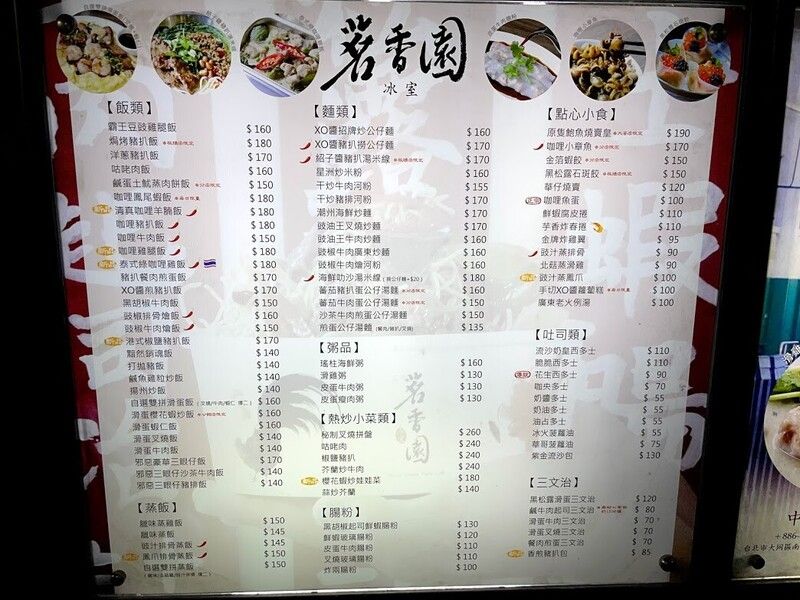 茗香園
冰室
【飯類】
霸王豆豉雞腿飯 $ 160
焗烤豬扒飯 $ 180
洋蔥豬扒飯 $ 170
咕咾肉飯 $ 160
鹹蛋土魷蒸肉餅飯 $ 150
咖哩鳳尾蝦飯 $ 180
清真咖哩羊腩飯 $ 180
咖哩豬扒飯 $ 180
咖哩牛肉飯 $ 150
咖哩雞腿飯 $ 180
泰式綠咖哩雞飯 $ 180
豬扒餐肉煎蛋飯 $ 150
XO醬煎豬扒飯 $ 170
黑胡椒牛肉飯 $ 150
豉椒排骨燴飯 $ 160
豉椒牛肉燴飯 $ 150
港式椒鹽豬扒飯 $ 170
黯然銷魂飯 $ 140
打拋豬飯 $ 140
鹹魚雞粒炒飯 $ 140
揚州炒飯 $ 140
自選雙拼滑蛋飯 $ 160
滑蛋櫻花蝦炒飯 $ 160
滑蛋蝦仁飯 $ 160
滑蛋叉燒飯 $ 140
滑蛋牛肉飯 $ 140
邪惡豪華三眼仔飯 $ 170
邪惡三眼仔沙茶牛肉飯 $ 140
邪惡三眼仔豬排飯 $ 140
【蒸飯】
臘味蒸雞飯 $ 150
臘味蒸飯 $ 145
豉汁排骨蒸飯 $ 145
鳳爪排骨蒸飯 $ 150
自選雙拼蒸飯 $ 150
【麵類】
XO醬招牌炒公仔麵 $ 160
XO醬豬扒撈公仔麵 $ 170
紹子醬豬扒湯米線 $ 170
星洲炒米粉 $ 160
干炒牛肉河粉 $ 155
干炒豬排河粉 $ 170
潮州海鮮炒麵 $ 170
豉油王叉燒炒麵 $ 160
豉油王牛肉炒麵 $ 160
豉椒牛肉廣東炒麵 $ 160
豉椒牛肉燴河粉 $ 160
海鮮叻沙湯米線 (換公仔麵+$20) $ 180
蕃茄豬扒蛋公仔湯麵 $ 160
蕃茄牛肉蛋公仔湯麵 $ 150
沙茶牛肉煎蛋公仔湯麵 $ 150
煎蛋公仔湯麵 (餐肉/豬扒/叉燒) $ 135
【粥品】
瑤柱海鮮粥 $ 160
滑雞粥 $ 130
皮蛋牛肉粥 $ 130
皮蛋瘦肉粥 $ 130
【熱炒小菜類】
秘制叉燒拼盤 $ 260
咕咾肉 $ 240
椒鹽豬扒 $ 240
芥蘭炒牛肉 $ 240
櫻花蝦炒娃娃菜 $ 180
蒜炒芥蘭 $ 140
【腸粉】
黑胡椒起司鮮蝦腸粉 $ 130
鮮蝦玻璃腸粉 $ 120
皮蛋牛肉腸粉 $ 110
叉燒玻璃腸粉 $ 110
炸兩腸粉 $ 100
【點心小食】
原隻鮑魚燒賣皇 $ 190
咖哩小章魚 $ 170
金箔蝦餃 $ 150
黑松露石斑餃 $ 150
華仔燒賣 $ 120
咖哩魚蛋 $ 100
鮮蝦腐皮捲 $ 110
芋香炸春捲 $ 110
金牌炸雞翼 $ 95
豉汁蒸排骨 $ 90
北菇蒸滑雞 $ 90
豉汁蒸鳳爪 $ 80
手切XO醬蘿蔔糕 $ 100
廣東老火例湯 $ 100
【吐司類】
流沙奶皇西多士 $ 110
脆脆西多士 $ 110
花生西多士 $ 90
咖央多士 $ 70
奶醬多士 $ 55
奶油多士 $ 55
油占多士 $ 55
冰火菠蘿油 $ 55
華哥菠蘿油 $ 75
紫金流沙包 $ 130
【三文治】
黑松露滑蛋三文治 $ 120
鹹牛肉起司三文治 $ 80
滑蛋牛肉三文治 $ 70
滑蛋火腿三文治 $ 70
餐肉煎蛋三文治 $ 70
香煎豬扒包 $ 85
+886-
台北市大同區南